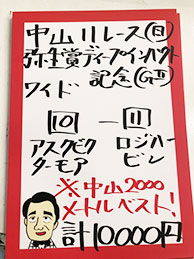 中山11レース(日)
弥生賞ディープインパクト
記念(GⅡ)
ワイド
10 ー 11
アスクビク ロジハー
ターモア ビレ
※中山2000
メートルベスト!
計10000円